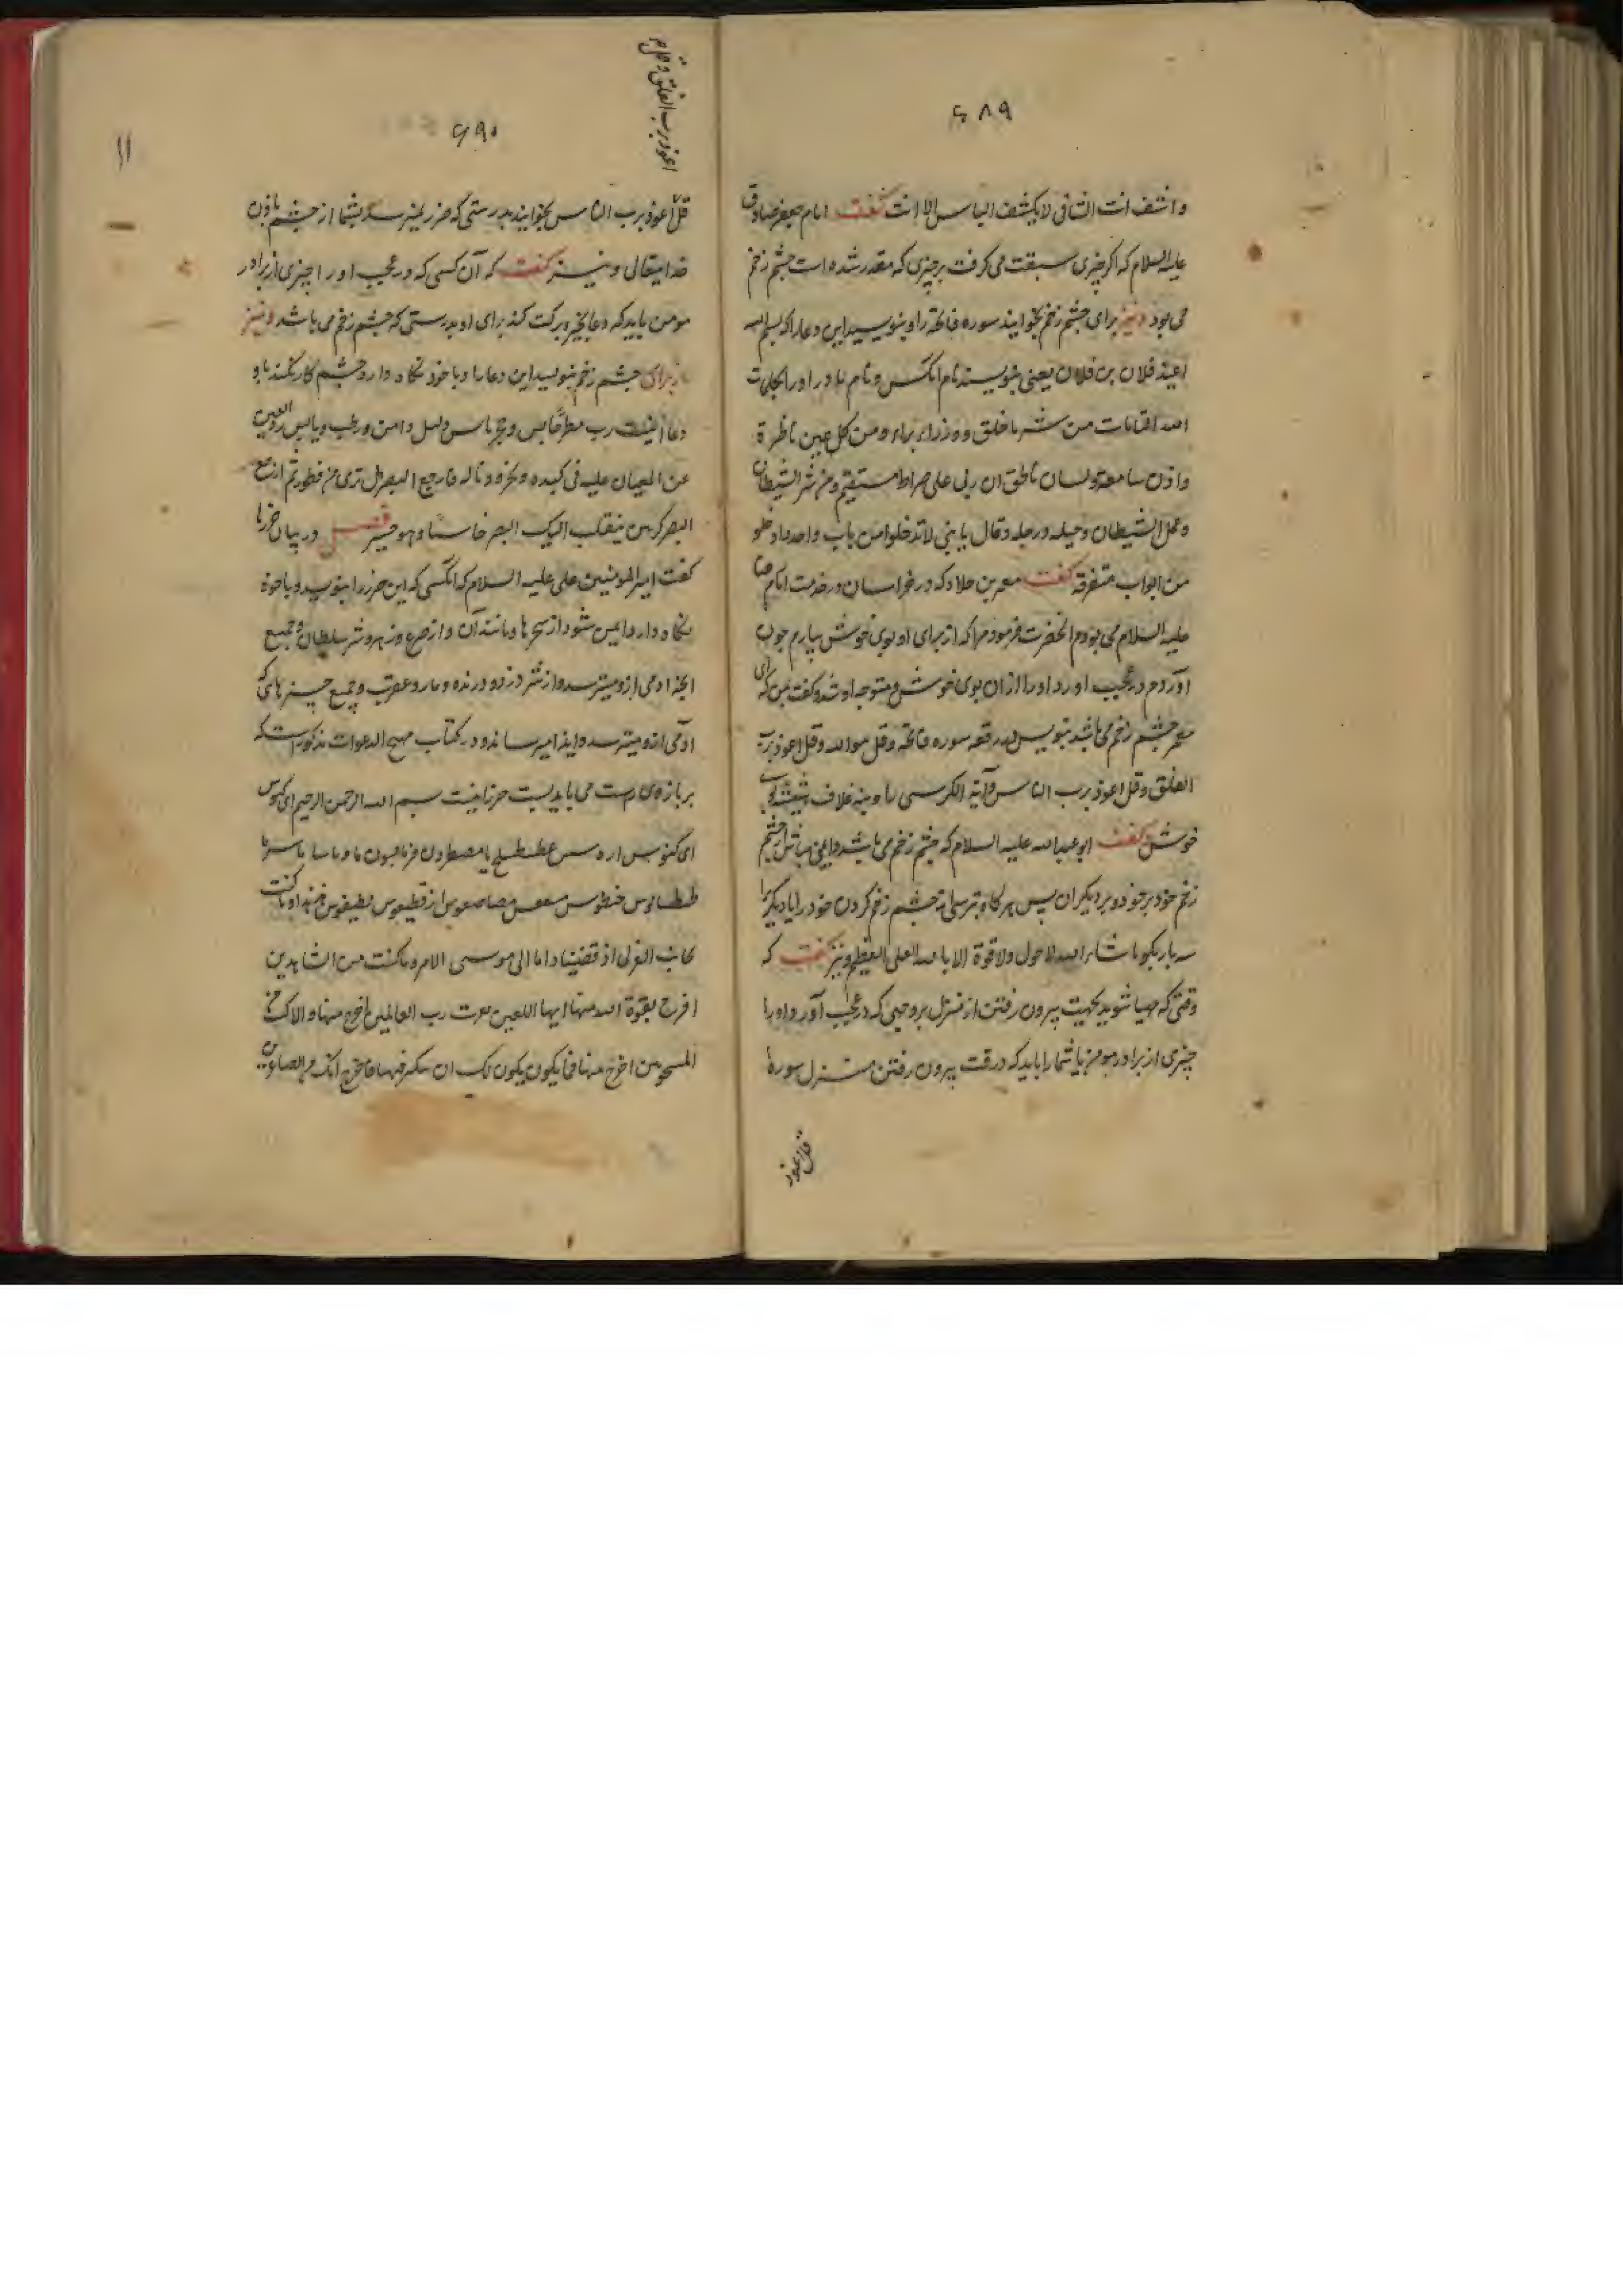 ۶۸۹
واشف انت الشافی لا یکشف الباس الا انت گفت امام جعفر صادق
علیه السلام که اگر چیزی سبقت می کرفت بر چیزی که مقدر شده است چشم زخم
می بود و نیز برای چشم زخم بخوانید سوره فاتحه را و بنویسید این دعا را که بسم الله
اعیذ فلان بن فلان یعنی بنویسند نام آنکس و نام مادر او را بکلمات
الله التامات من شر ما خلق و وذراء براء و من کل عین ناظرة
واذن سامعة ولسان ناطق ان ربی علی صراط مستقیم ومن شر الشیطان
وعمل الشیطان وخیله ورجله وقال یا بنی لا تدخلوا من باب واحد وادخلو
من ابواب متفرقة گفت معمر بن خلاد که در خراسان در خدمت امام رضا
علیه السلام می بودم آنحضرت فرمود مرا که از برای او بوی خوش بیارم چون
آوردم در عجب آورد او را از آن بوی خوش و متوجه او شد و گفت بمن که ای
معمر چشم زخم می باشد بنویس در رقعه سوره فاتحه و قل هو الله و قل اعوذ برب
الفلق و قل اعوذ برب الناس و آیة الکرسی را و بنه غلاف شیشه بوی
خوش گفت ابو عبدالله علیه السلام که چشم زخم می باشد و ایمن مباش از چشم
زخم خود بر خود و بر دیگران پس هر گاه بترسی از چشم زخم کردن خود را یا دیگری را
سه بار بگو ما شاء الله لا حول ولا قوة الا بالله العلی العظیم و نیز گفت که
وقتی که مهیا شوید بجهت بیرون رفتن از منزل بر وجهی که در عجب آورد او را
چیزی از برادر مومن یا شما را باید که در وقت بیرون رفتن منزل سورهٔ
قل اعوذ
۶۹۰
۱۱
اعوذ برب الفلق و قل
قل اعوذ برب الناس بخوانید بدرستی که ضرر نمیرسد بشما از چشم باذن
خدایتعالی و نیز گفت که آن کسی که در عجب آورد او را چیزی از برادر
مومن باید که دعا بخیر و برکت کند برای او بدرستی که چشم زخم می باشد و نیز
از برای چشم زخم بنویسد این دعا را و با خود نگاه دارد چشم کار نکند باو
دعا اینست رب مطر حابس و حجر یابس ولیل دامس ورطب ویابس رد عین العین
عن المعیان علیه فی کبده ونحره وماله فارجع البصر هل تری من فطور ثم ارجع
البصر کرتین ینقلب الیک البصر خاسئا وهو حسیر فصل در بیان حرزها
گفت امیر المومنین علی علیه السلام که آنکسی که این حرز را بنویسد و با خود
نگاه دارد ایمن شود از سحرها و مانند آن و از صرع و زهر و شر سلطان و جمیع
آنچه آدمی ازو میترسد و از شر دزد و درنده و مار و عقرب و جمیع چیزهای که
آدمی ازو میترسد و ایذا میرساند و در کتاب مهج الدعوات مذکور است که
بر بازوی راست می باید بست حرز اینست بسم الله الرحمن الرحیم ای کنوس
ای کنوس اره شش عطیطیطیح یا مطیطرون قریالسیون ما و ما سا ما سوما
طیطسالوس خیطوس مصاصعوس لطیفوس هذا وما کنت
بجانب الغربی اذ قضینا الی موسی الامر وما کنت من الشاهدین
اخرج بقوة الله منها ایها اللعین بعزت رب العالمین اخرج منها والا کنت من
المسجونین اخرج منها فما یکون لک ان تتکبر فیها فاخرج انک من الصاغرین